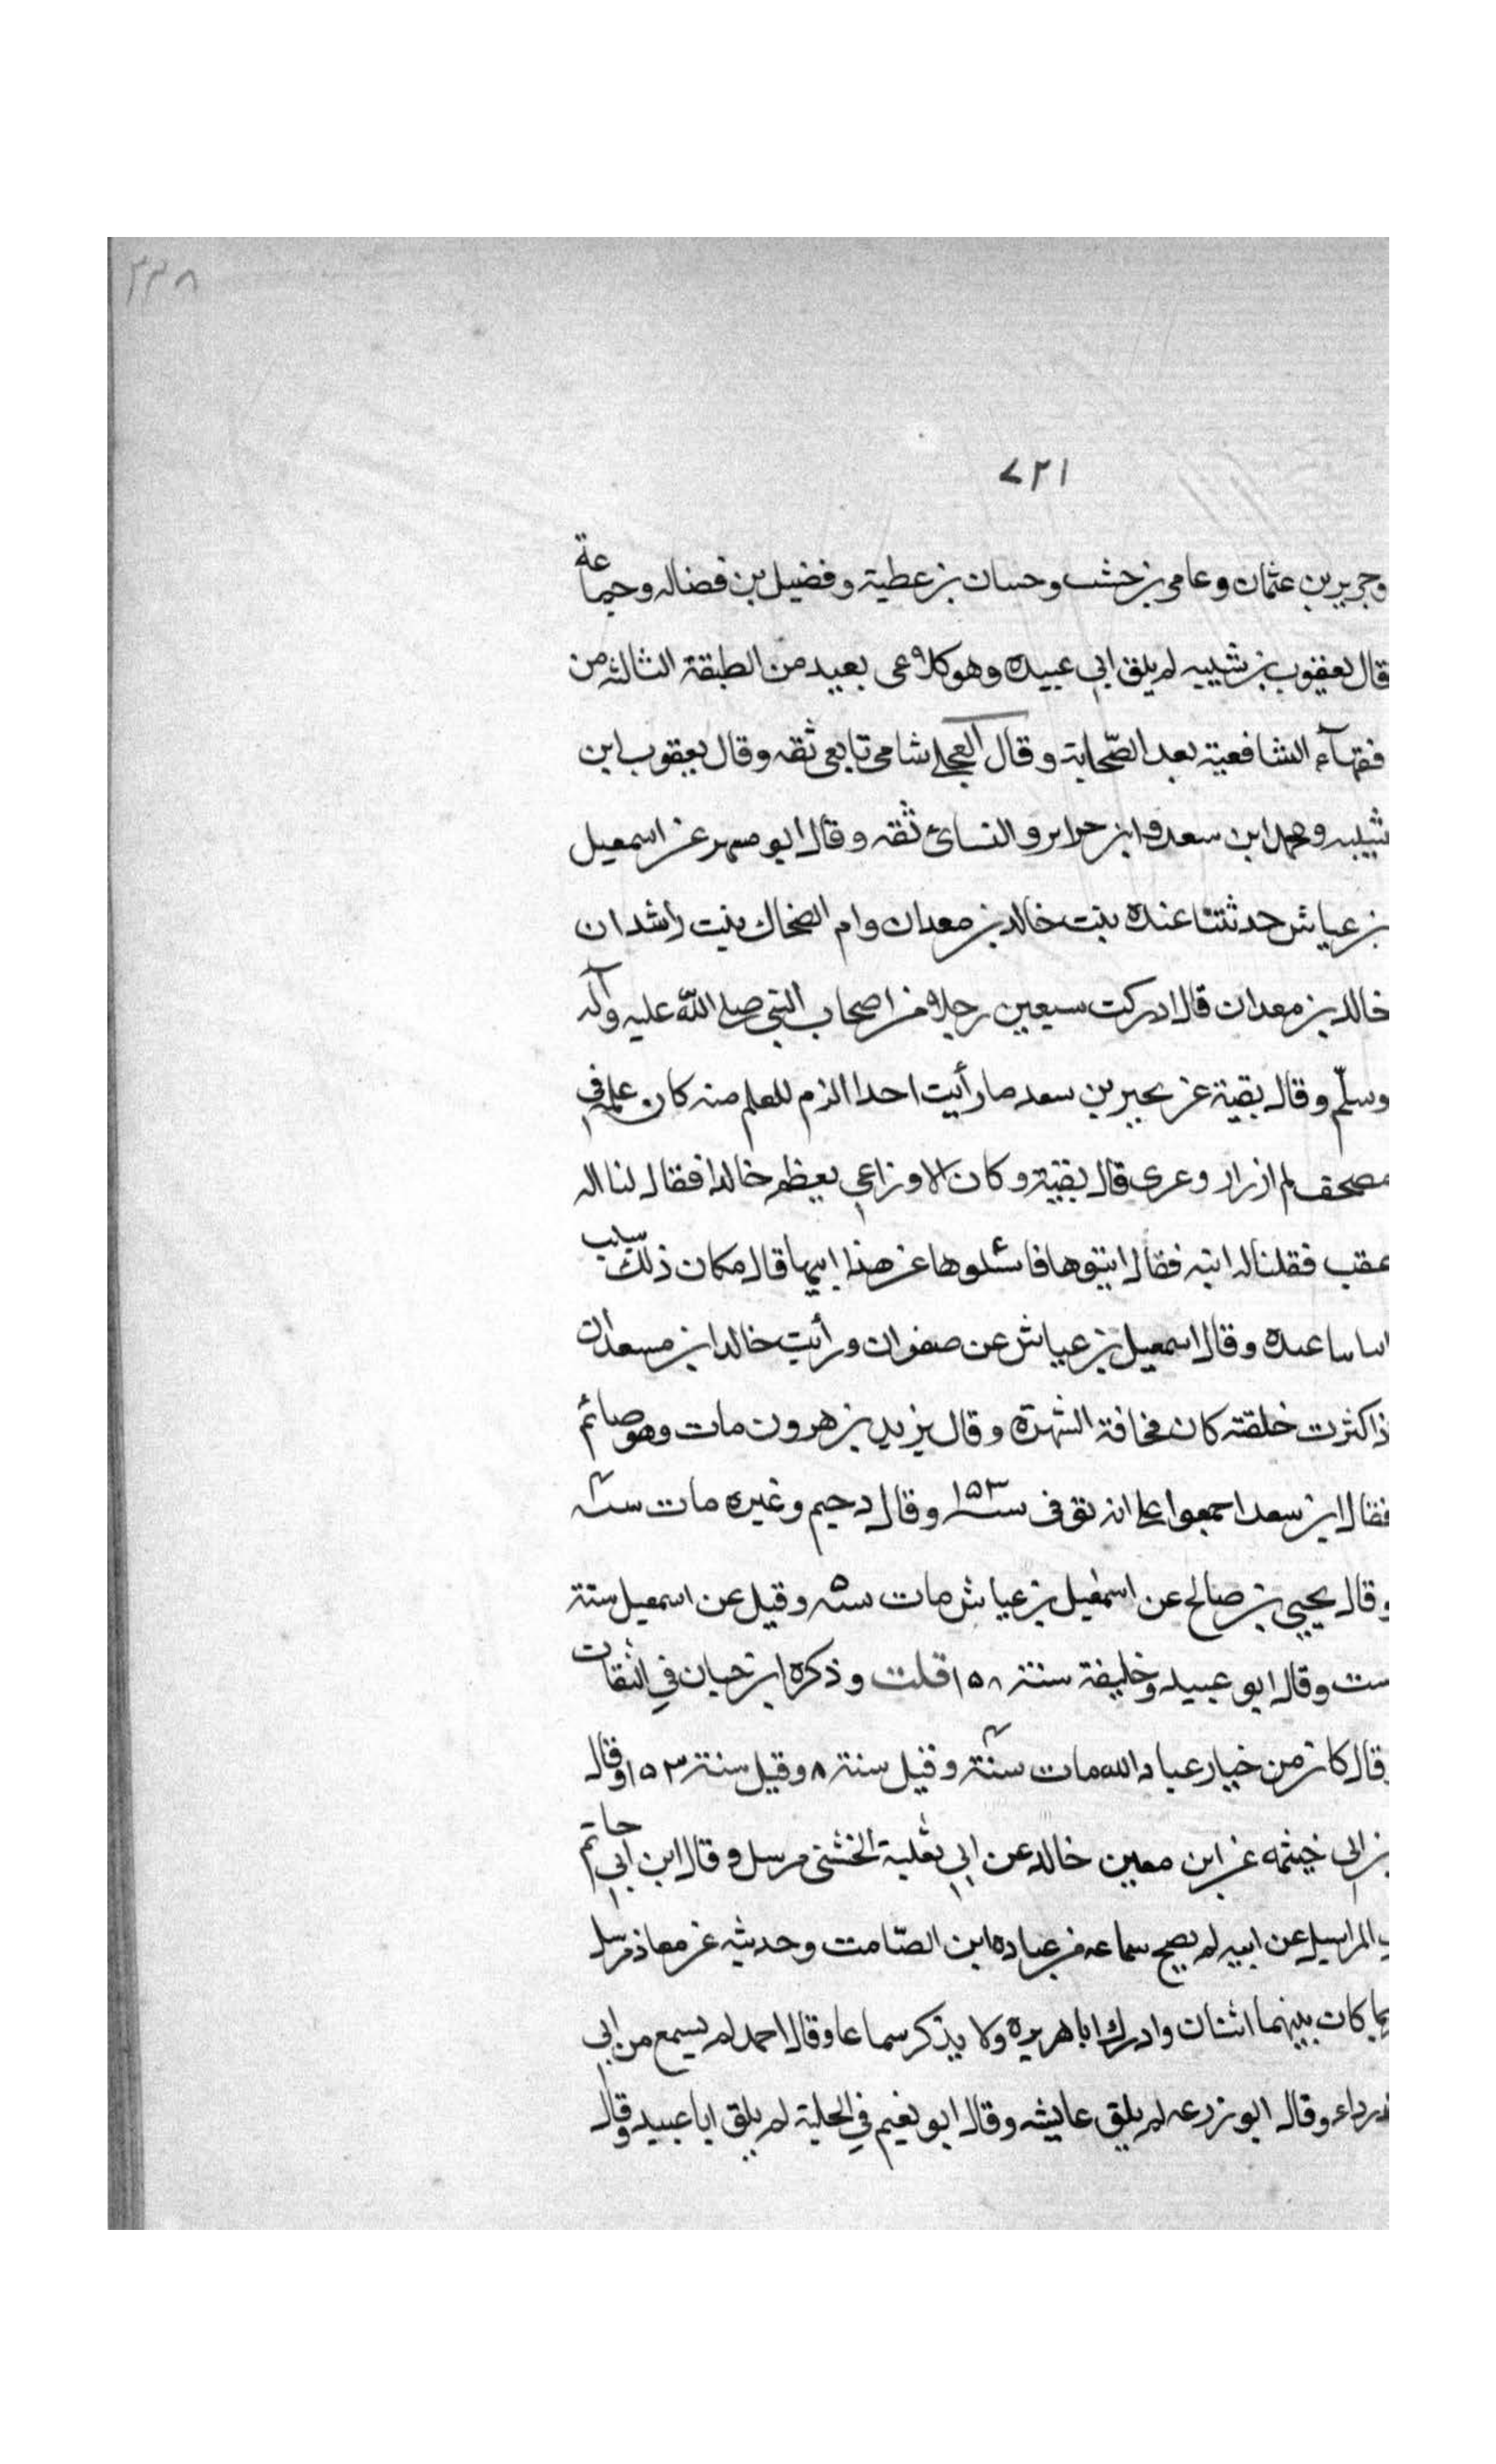 ٢٢٨
٧٢١
وجرير بن عثمان وعامر بن حشب وحسان بن عطية وفضيل بن فضاله وجماعة
قال يعقوب بن شيبه لم يلق ابي عبيده وهو كلاعى بعيد من الطبقة الثالثه من
فقهآء الشافعية بعد الصّحابة وقال العجلى شامى تابعى ثقه وقال يعقوب ابن
شيبه ومحمد ابن سعد وابن خراش والنسائ ثقه وقال ابو مسهر عن اسمعيل
بن عياش حدثتنا عبدة بنت خالد بن معدان وام الضحاك بنت راشد ان
خالد بن معدان قال ادركت سبعين رجلا من اصحاب النبي صلى الله عليه وآله
وسلّم وقال بقية عن بحير بن سعد ما رأيت احدا الزم للعلم منه كان علمه في
مصحف له ازرار وعرى قال بقية وكان الاوزاعي يعظم خالدا فقال لنا اله
عقب فقلنا له ابنه فقال ائتوها فاسئلوها عن هذا ابيها قال مكان ذلك سبب
ساعبده وقال اسمعيل بن عياش عن صفوان ورأيت خالد ابن مسعدان
ذا كثرت خلقته كان مخافة الشهرة وقال يزيد بن هرون مات وهو صائم
فقال ابن سعد اجمعوا على انه توفى سنة ١٥٣ وقال دحيم وغيره مات سنة
وقال يحيى بن صالح عن اسمعيل بن عياش مات سنة ٥ وقيل عن اسمعيل سنة
ست وقال ابو عبيد وخليفة سنة ١٥٨ قلت وذكره ابن حبان في الثقات
وقال كان من خيار عباد الله مات سنة وقيل سنة ٨ وقيل سنة ١٥٣ وقال
بن ابى خيثمه عن ابن معين خالد عن ابي ثعلبة الخشنى مرسل وقال ابن ابي حاتم
المراسيل عن ابيه لم يصح سماعه من عباده ابن الصّامت وحديثه عن معاذ مرسل
بما كان بينهما اثنان وادرك ابا هريرة ولا يذكر سماعا وقال احمد لم يسمع من ابي
درداء وقال ابو زرعه لم يلق عايشه وقال ابو نعيم في الحلية لم يلق ابا عبيد وقال